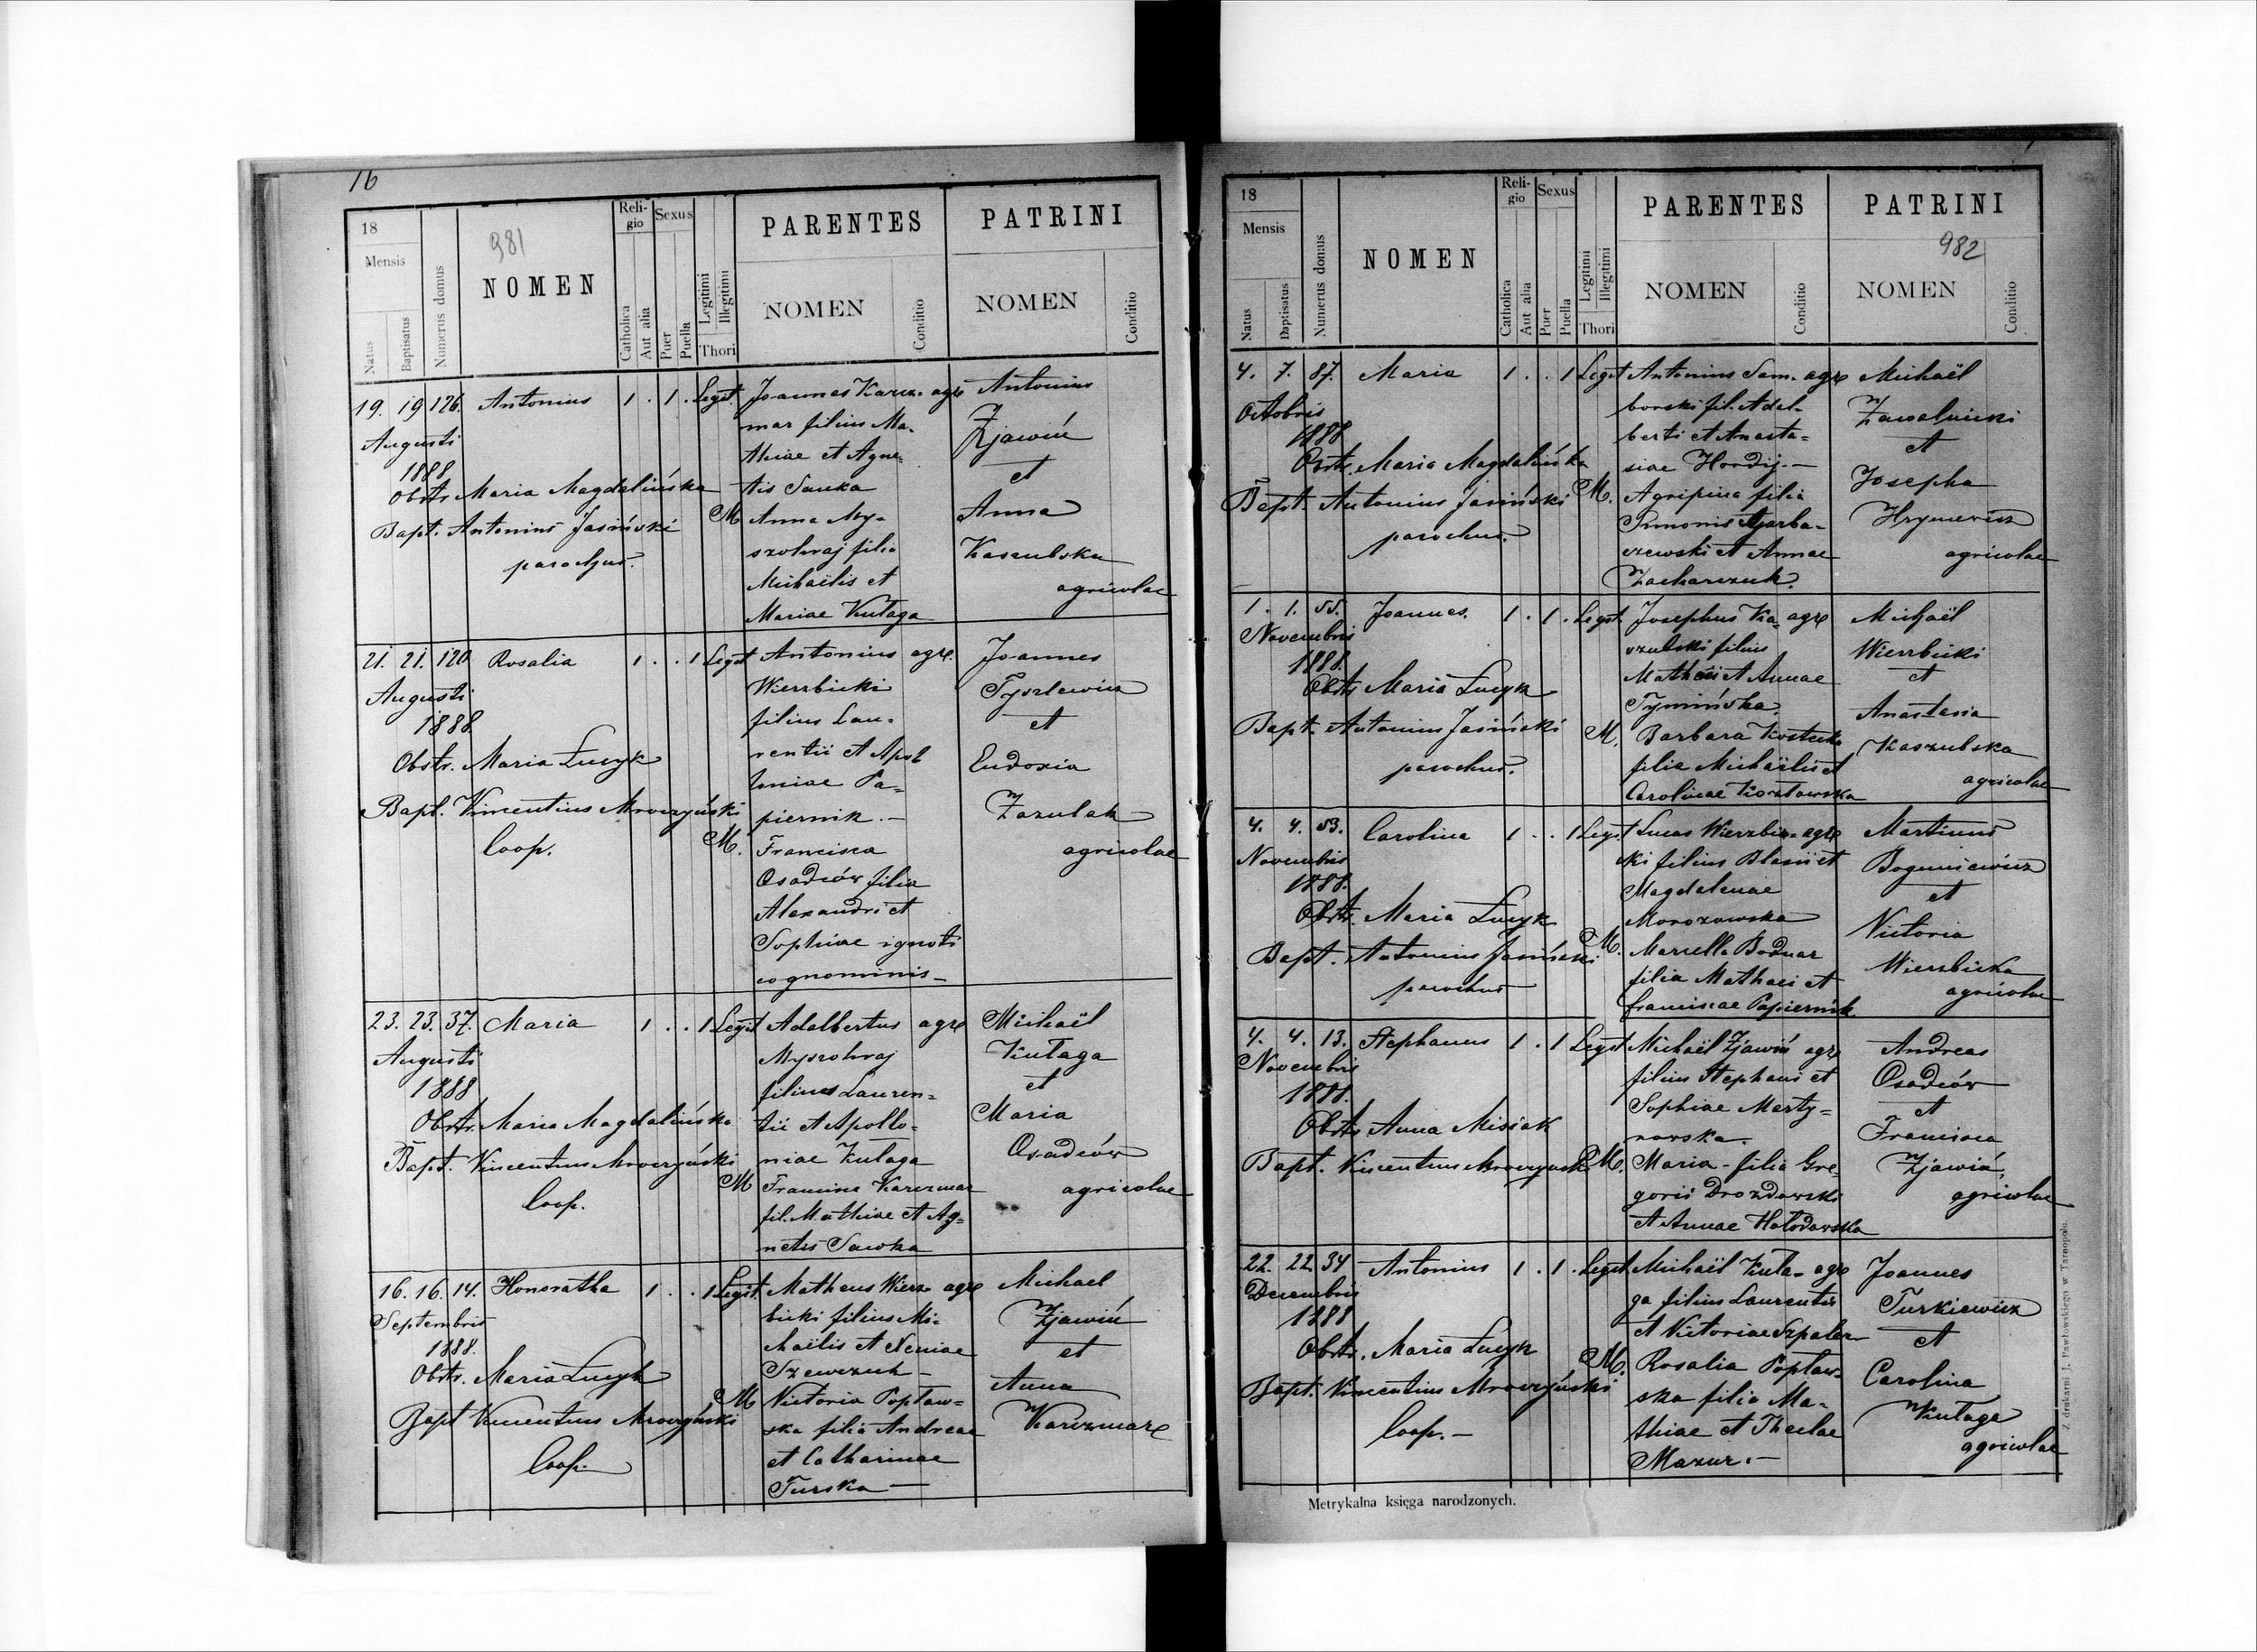 16
18
Mensis
Natus
Baptisatus
Numerus domus
981
NOMEN
Reli-
gio
Catholica
Aut alia
Sexus
Puer
Puella
Legitimi
Illegitimi
Thori
PARENTES
NOMEN
Conditio
PATRINI
NOMEN
Conditio
19. 19 126. Antonius 1 . 1 . Legit. Joannes Karcz- agre Antonius
Augusti mar filius Ma- Zjawiń
1888 thiae et Agne- et
Obstr. Maria Magdalińska tis Sauka
Bapt. Antonius Jasiński M Anna My- Anna
parochus. szohraj filia Kaszubska
Michaëlis et agricolae
Mariae Kutaga
21. 21. 120 Rosalia 1 . . 1 Legit Antonius agre. Joannes
Augusti Wierzbicki Tyszkewicz
1888. filius Lau- et
Obstr. Maria Łucyk rentii et Apol Eudoxia
loniae Pa-
Bapt. Vincentius Mroczyński piernik. — Zazulak
Coop. M. Francisca agricolae
Osadców filia
Alexandri et
Sophiae ignoti
cognominis —
23. 23. 37. Maria 1 . . 1 Legit Adalbertus agre Michaël
Augusti Myszohraj Kutaga
1888 filius Lauren- et
Obstr. Maria Magdalińska tii et Apollo- Maria
Bapt. Vincentius Mroczyński niae Kutaga Osadców
Coop. M Francisca Karczmar agricolae
fil. Mathiae et Ag-
netis Sawka
16. 16. 14. Honoratha 1 . . 1 Legit. Matheus Wierz- agre Michael
Septembris bicki filius Mi- Zjawiń
1888. chaëlis et Xeniae et
Obstr. Maria Łucyk Szewczuk — Anna
Bapt Vincentius Mroczyński M Victoria Popław- Karczmare
Coop. ska filia Andreae
et Catharinae
Turska —
18
Mensis
Natus
Baptisatus
Numerus domus
NOMEN
Reli-
gio
Catholica
Aut alia
Sexus
Puer
Puella
Legitimi
Illegitimi
Thori
PARENTES
NOMEN
Conditio
PATRINI
982
NOMEN
Conditio
4. 7. 87. Maria 1 . . 1 Legit Antonius Sam- agre Michaël
Octobris borski fil. Adal- Zawalnicki
1888 berti et Anasta- et
Obstr. Maria Magdalińska siae Hordij. — Josepha
Bapt. Antonius Jasiński M. Agripina filia Hrynewicz
parochus. Simonis Garba- agricolae
czewski et Annae
Zacharczuk.
1. 1. 55. Joannes. 1 . 1 . Legit. Josephus Ka- agre Michaël
Novembris szubski filius Wierzbicki
1888. Mathei et Annae et
Obstr Maria Łucyk Tymińska. Anastasia
Bapt. Antonius Jasiński M. Barbara Kostecka Kaszubska
parochus. filia Michaëlis et agricolae
Carolinae Kozłowska
4. 4. 53. Carolina 1 . . 1 Legit Lucas Wierzbic- agre Martinus
Novembris ki filius Blasii et Boguniewicz
1888. Magdalenae et
Obstr. Maria Łucyk Morozowska Victoria
Bapt. Antonius Jasiński M. Marcella Bodnar Wierzbicka
parochus filia Mathaei et agricolae
Franciscae Papiernik
4. 4. 13. Stephanus 1 . 1 Legit Michaël Zjawiń agre Andreas
Novembris filius Stephani et Osadców
1888. Sophiae Marty- et
Obstr Anna Misiak nowska. Francisca
Bapt. Vincentius Mroczyński M. Maria - filia Gre- Zjawiń,
gorii Drozdowski agricolae
et Annae Hołodowska
22. 22. 34 Antonius 1 . 1 . Legit Michaël Kuta- agre Joannes
Decembris ga filius Laurentii Turkiewicz
1888 et Victoriae Szpaler et
Obstr. Maria Łucyk M. Rosalia Popław- Carolina
Bapt. Vincentius Mroczyński ska filia Ma- Kutaga
Coop. — thiae et Theclae agricolae
Mazur. —
Metrykalna księga narodzonych.
Z drukarni J. Pawłowskiego w Tarnopolu.